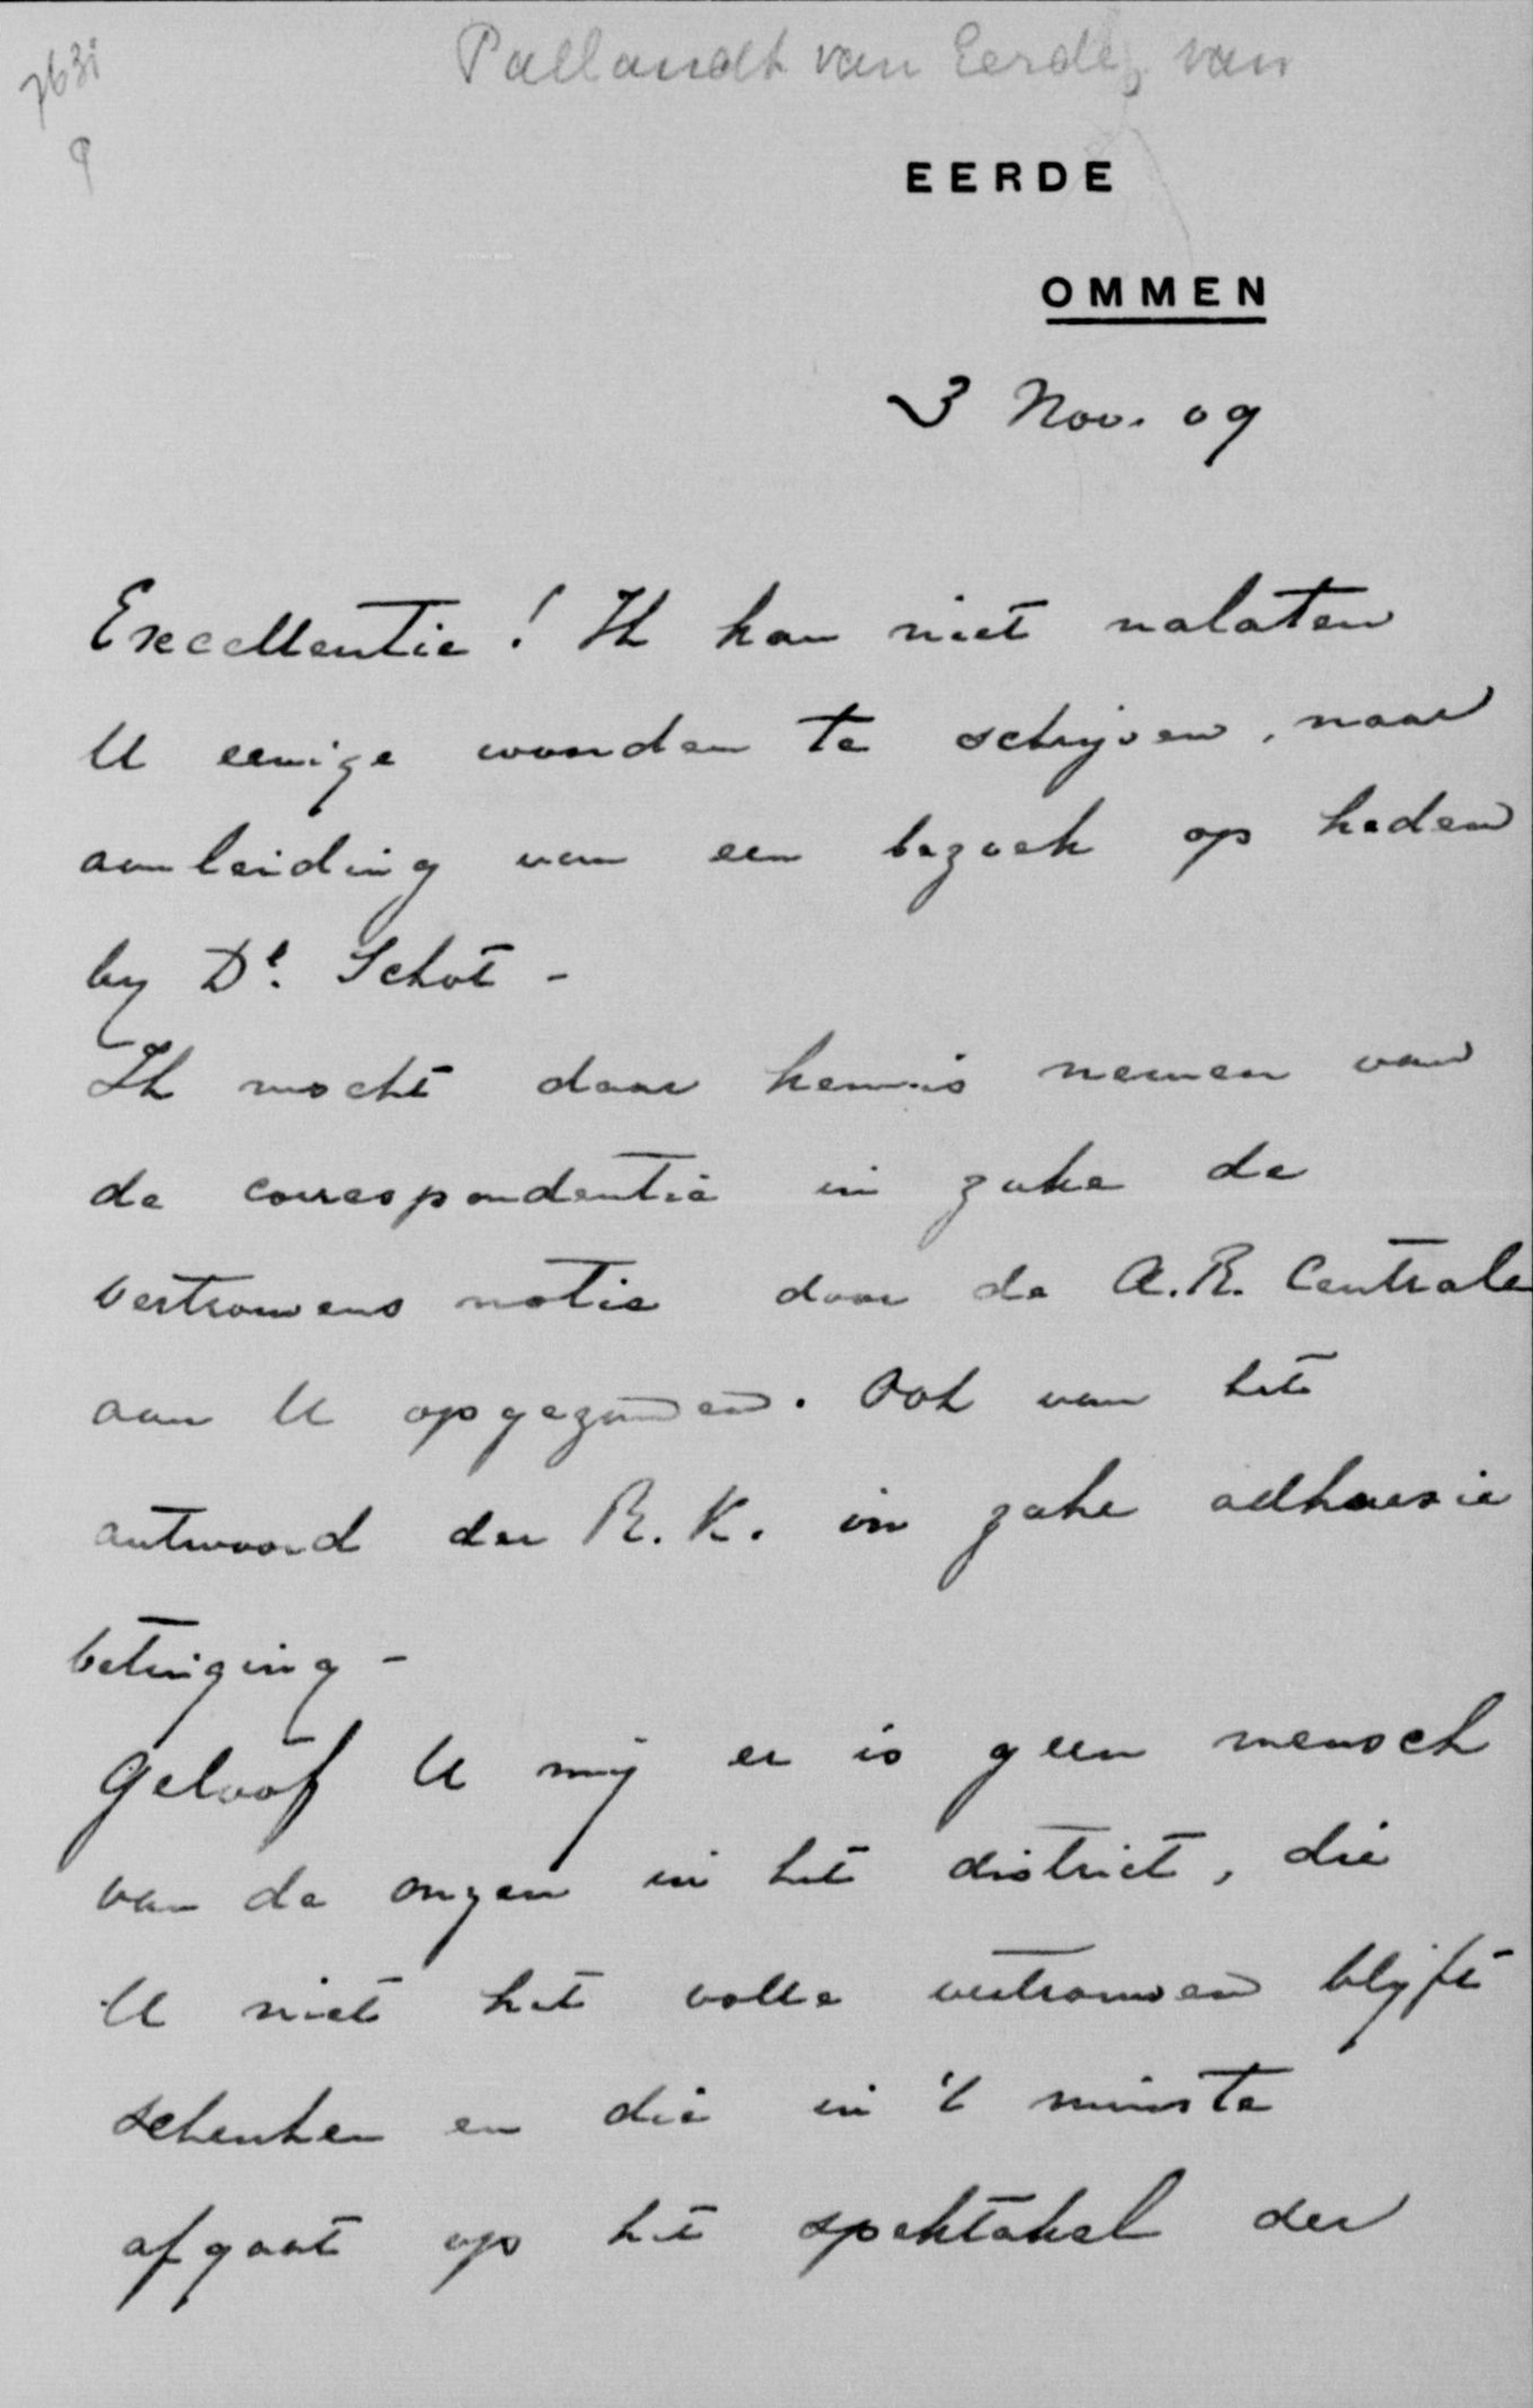 7631
Pallandt van Eerde, van
9
EERDE
OMMEN
3 Nov. 09
Excellentie! Ik kan niet nalaten
U eenige woorden te schrijven, naar
aanleiding van een bezoek op heden
by Dr. Schot -
Ik mocht daar kennis nemen van
de correspondentie in zake de
vertrouwens motie door de A.R. Centrale
aan U opgezonden. Ook van het
antwoord der R.K. in zake adhaesie
betuiging -
Geloof U mij er is geen mensch
van de onzen in het district, die
U niet het volle vertrouwen blijft
schenken en die in 't minste
afgaat op het spektakel der